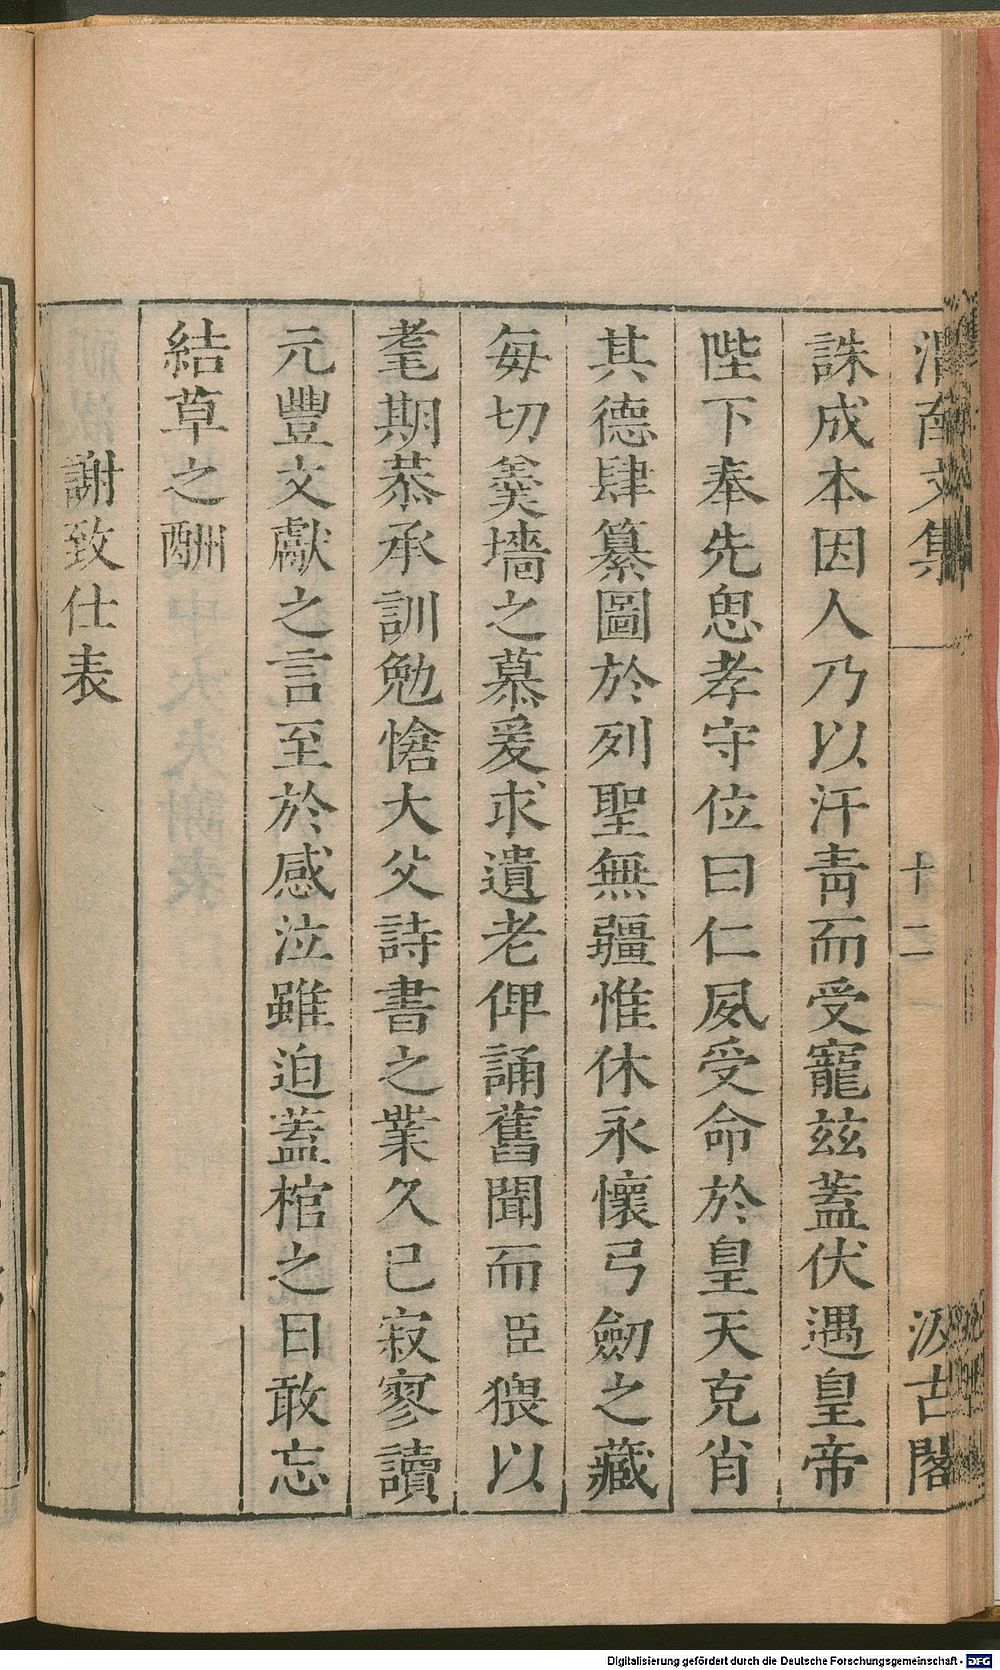 渭南文集 十二 汲古閣
誅成本因人乃以汗靑而受寵茲蓋伏遇皇帝
陛下奉先思孝守位曰仁夙受命於皇天克肖
其德肆纂圖於列聖無疆惟休永懷弓劒之藏
每切羹墻之慕爰求遺老俾誦舊聞而臣猥以
耄期恭承訓勉愴大父詩書之業久已寂寥讀
元豐文獻之言至於感泣雖迫蓋棺之日敢忘
結草之酬
謝致仕表
Digitalisierung gefördert durch die Deutsche Forschungsgemeinschaft - DFG